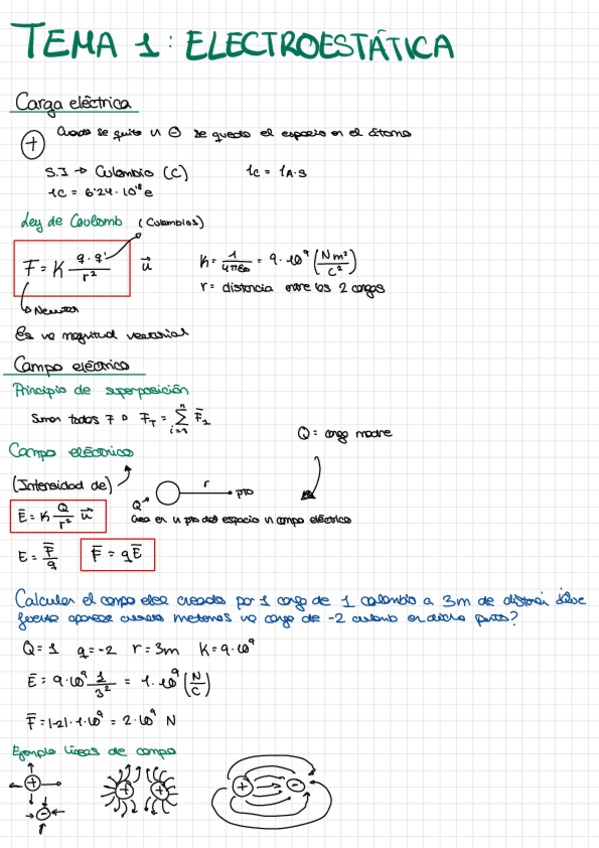 TEMA 1: ELECTROESTÁTICA
Carga eléctrica
+ Cuando se quita un ⊖ se queda el espacio en el átomo
S.I → Culombio (C) 1C = 1A·s
1C = 6'24·10¹⁸ e
Ley de Coulomb (Culombios)
F̄ = K q·q' / r² u⃗
K = 1/4πε₀ = 9·10⁹ (Nm²/C²)
r = distancia entre los 2 cargas
Newton
Es una magnitud vectorial
Campo eléctrico
Principio de superposición
Sumar todas F̄ F̄T = Σ F̄1
n
i=1
Q = carga madre
Campo eléctrico
(Intensidad de)
Q r pto
Crea en un pto del espacio un campo eléctrico
Ē = K Q/r² u⃗
E = F̄/q F̄ = qĒ
Calcular el campo elec creado por 1 carga de 1 culombio a 3m de distancia ¿Que
fuerza aparece cuando metemos una carga de -2 culomb en dicho punto?
Q = 1 q = -2 r = 3m K = 9·10⁹
Ē = 9·10⁹ 1/3² = 1·10⁹ (N/C)
F̄ = |-2|·1·10⁹ = 2·10⁹ N
Ejemplo líneas de campo
+ + + + -
-